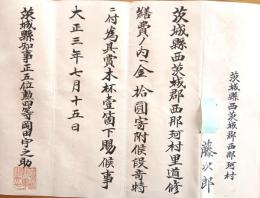 茨城縣西茨城郡西那珂村
藤次郎
茨城縣西茨城郡西那珂村里道修
繕費ノ内ヘ金拾圓寄附候段奇特
ニ付為其賞木杯壹箇下賜候事
大正三年七月十五日
茨城縣知事正五位勲四等岡田宇之助